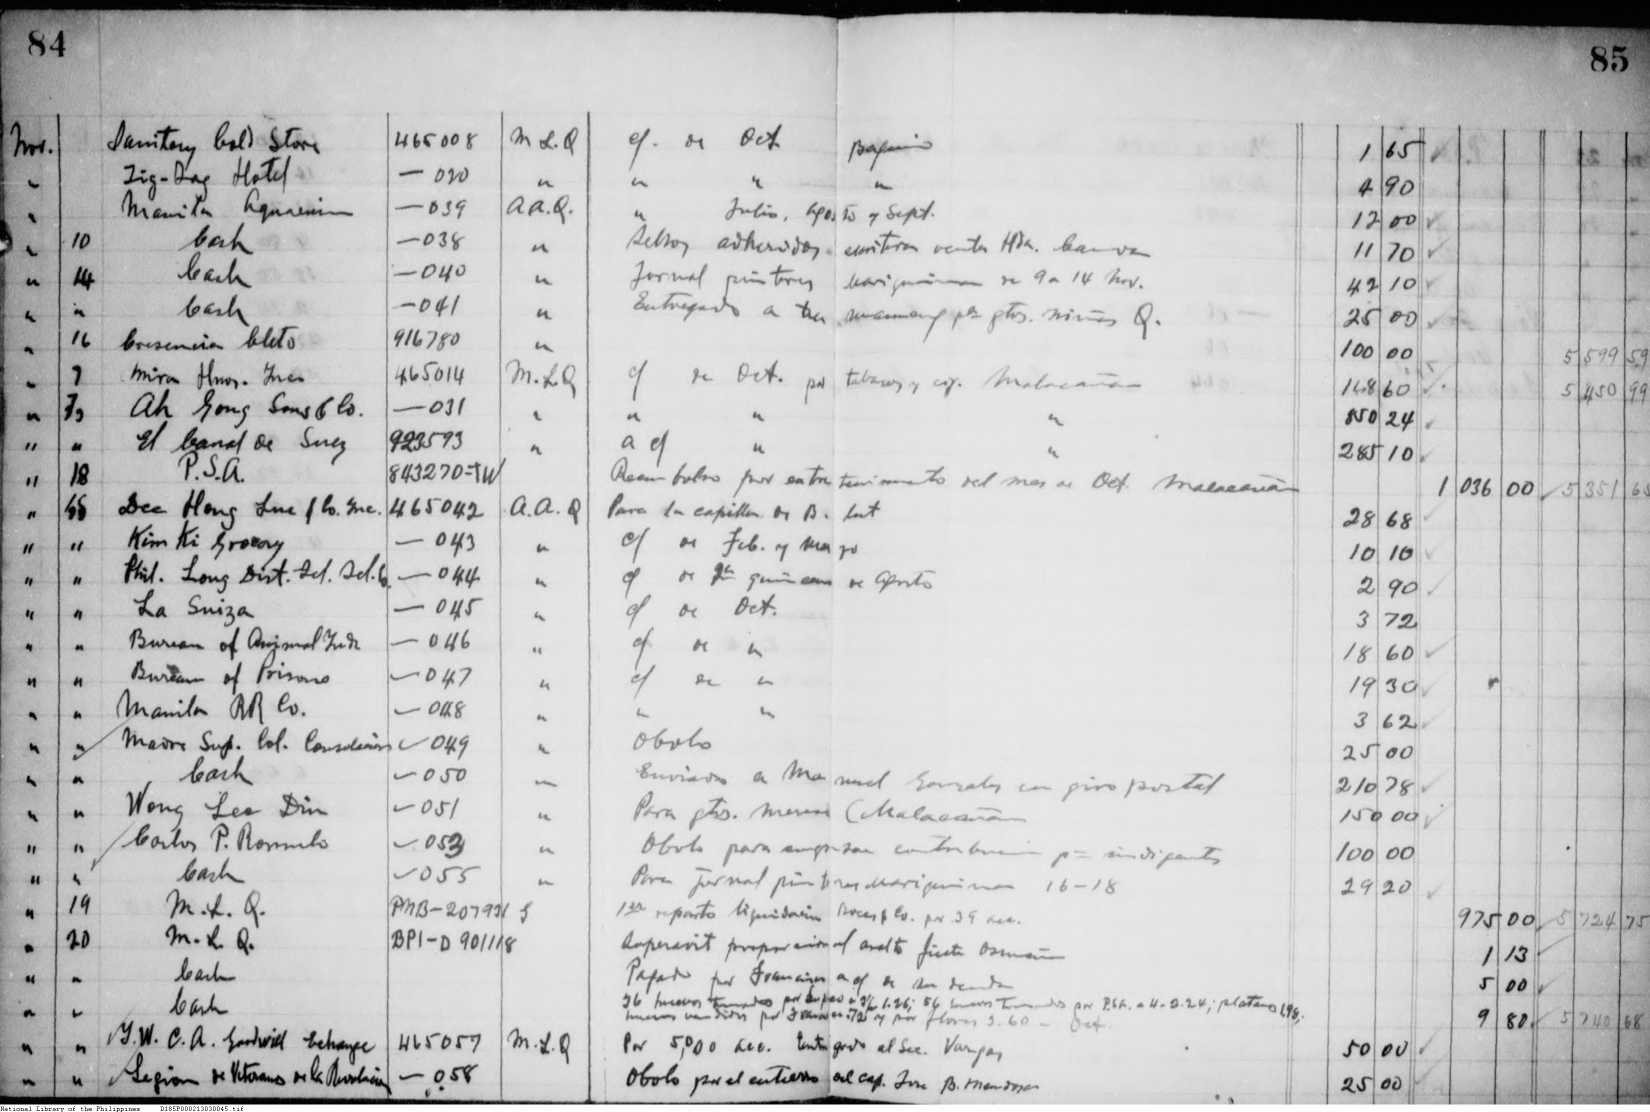 84
85
Nov. Sanitary Cold Store 465008 M.L.Q cf. de Oct. Baguio 1 65
" Zig-Zag Hotel — 020 " " " " 4 90
" Manila Aquarium — 039 A.A.Q. " Julio, Agosto y Sept. 12 00
" 10 Cash — 038 " Sellos adheridos escritura venta Hda. 11 70
" 14 Cash — 040 " Jornal pintores Mariquina de 9 a 14 Nov. 42 10
" " Cash — 041 " Entregado a gtos. niños Q. 25 00
" 16 Cresencia Cleto 916780 " 100 00 5 599 59
" 7 Mira Hnos. Inc 465014 M.L.Q cf de Oct. por tabacos y cig. Malacañan 148 60 5 450 99
" Ah Gong Sons & Co. — 031 " " " " 850 24
" " El Canal de Suez 923593 " a cf " " 285 10
" 18 P.S.A. 843270=TW Reembolso por entretenimiento del mes de Oct. Malacañan 1 036 00 5 351 65
" Dee Hong Lue & Co. Inc. 465042 A.A.Q Para la capilla de B. 28 68
" " Kim Ki Grocery — 043 " cf de Feb. y Marzo 10 10
" " Phil. Long Dist. Tel. Co. — 044 " cf de quincena de Agosto 2 90
" " La Suiza — 045 " cf de Oct. 3 72
" " Bureau of Animal Ind. — 046 " cf de " 18 60
" " Bureau of Prisons — 047 " cf de " 19 30
" " Manila RR Co. — 048 " " " 3 62
" " Madre Sup. Col. — 049 " Obolo 25 00
" " Cash — 050 " Enviado a Manuel Gonzales en giro postal 210 78
" " Wong Lee Din — 051 " Para gtos. (Malacañan 150 00
" " Carlos P. Romulo — 053 " Obolo para contribucion pa indigentes 100 00
" " Cash — 055 " Para jornal pintores Mariquina 16-18 29 20
" 19 M.L.Q. PNB-207931 1er reparto liquidacion & Co. por 39 acc. 975 00 5 724 75
" 20 M.L.Q. BPI-D 901118 Superavit proporcional 1 13
" " Cash Pagado por Francisco a cf de su deuda 5 00
" " Cash 36 huevos tomados por 1.26; 56 huevos tomados por P.S.A. 2.24; platano 1.98;
huevos vendidos por y por flores 3.60 — Oct. 9 80 5 740 68
" " Y.W.C.A. Goodwill Exchange 465057 M.L.Q Por 5,000 acc. Entregado al Sec. Vargas 50 00
" " Legion de Veteranos de la Revolucion — 058 Obolo por el entierro del cap. Jose B. Mendoza 25 00
National Library of the Philippines D185P000213030045.tif